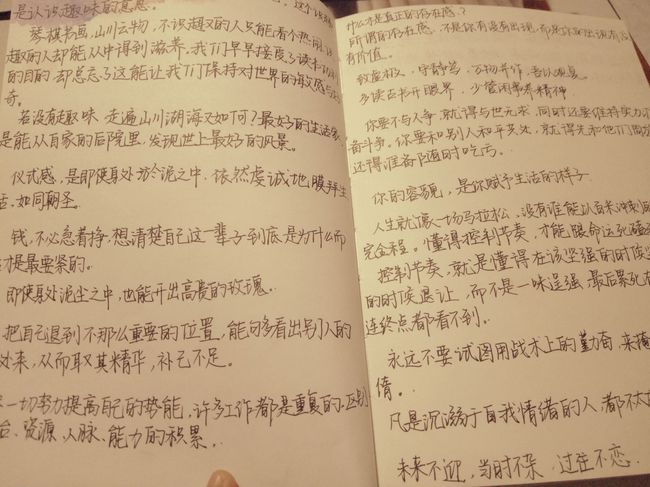 是认识趣味的意思。
琴棋书画,山川云物,不识趣的人只能看个热闹,识
趣的人却能从中得到滋养。我们早早接受了读书
的目的,却总忘了这能让我们保持对世界的敬畏与好
奇。
若没有趣味,走遍山川湖海又如何?最好的生活家,
是能从自家的后院里,发现世上最好的风景。
仪式感,是即使身处淤泥之中,依然虔诚地膜拜生
活,如同朝圣。
钱,不必急着挣,想清楚自己这一辈子到底是为什么而
才是最要紧的。
即使身处泥尘之中,也能开出高贵的玫瑰。
把自己退到不那么重要的位置,能够多看出别人的
从而取其精华,补己不足。
一切努力提高自己的势能,许多工作都是重复的,区别
台、资源、人脉、能力的积累。
什么才是真正的存在感?
所谓的存在感,不是你有没有出现,而是你的出现有没
有价值。
致虚极,守静笃,万物并作,吾以观复。
多读古书开眼界,少管闲事养精神
你要不与人争,就得与世无求,同时还要维持实力
奋斗争。你要和别人和平共处,就得先和他们
还得准备随时吃亏。
你的容貌,是你赋予生活的样子
人生就像一场马拉松,没有谁能以百米冲刺
完全程。懂得控制节奏,才能跟命运死磕
控制节奏,就是懂得在该坚强的时候坚
的时候退让,而不是一味逞强,最后累死在
连终点都看不到。
永远不要试图用战术上的勤奋,来掩
惰。
凡是沉溺于自我情绪的人,都不太
未来不迎,当时不杂,过往不恋.